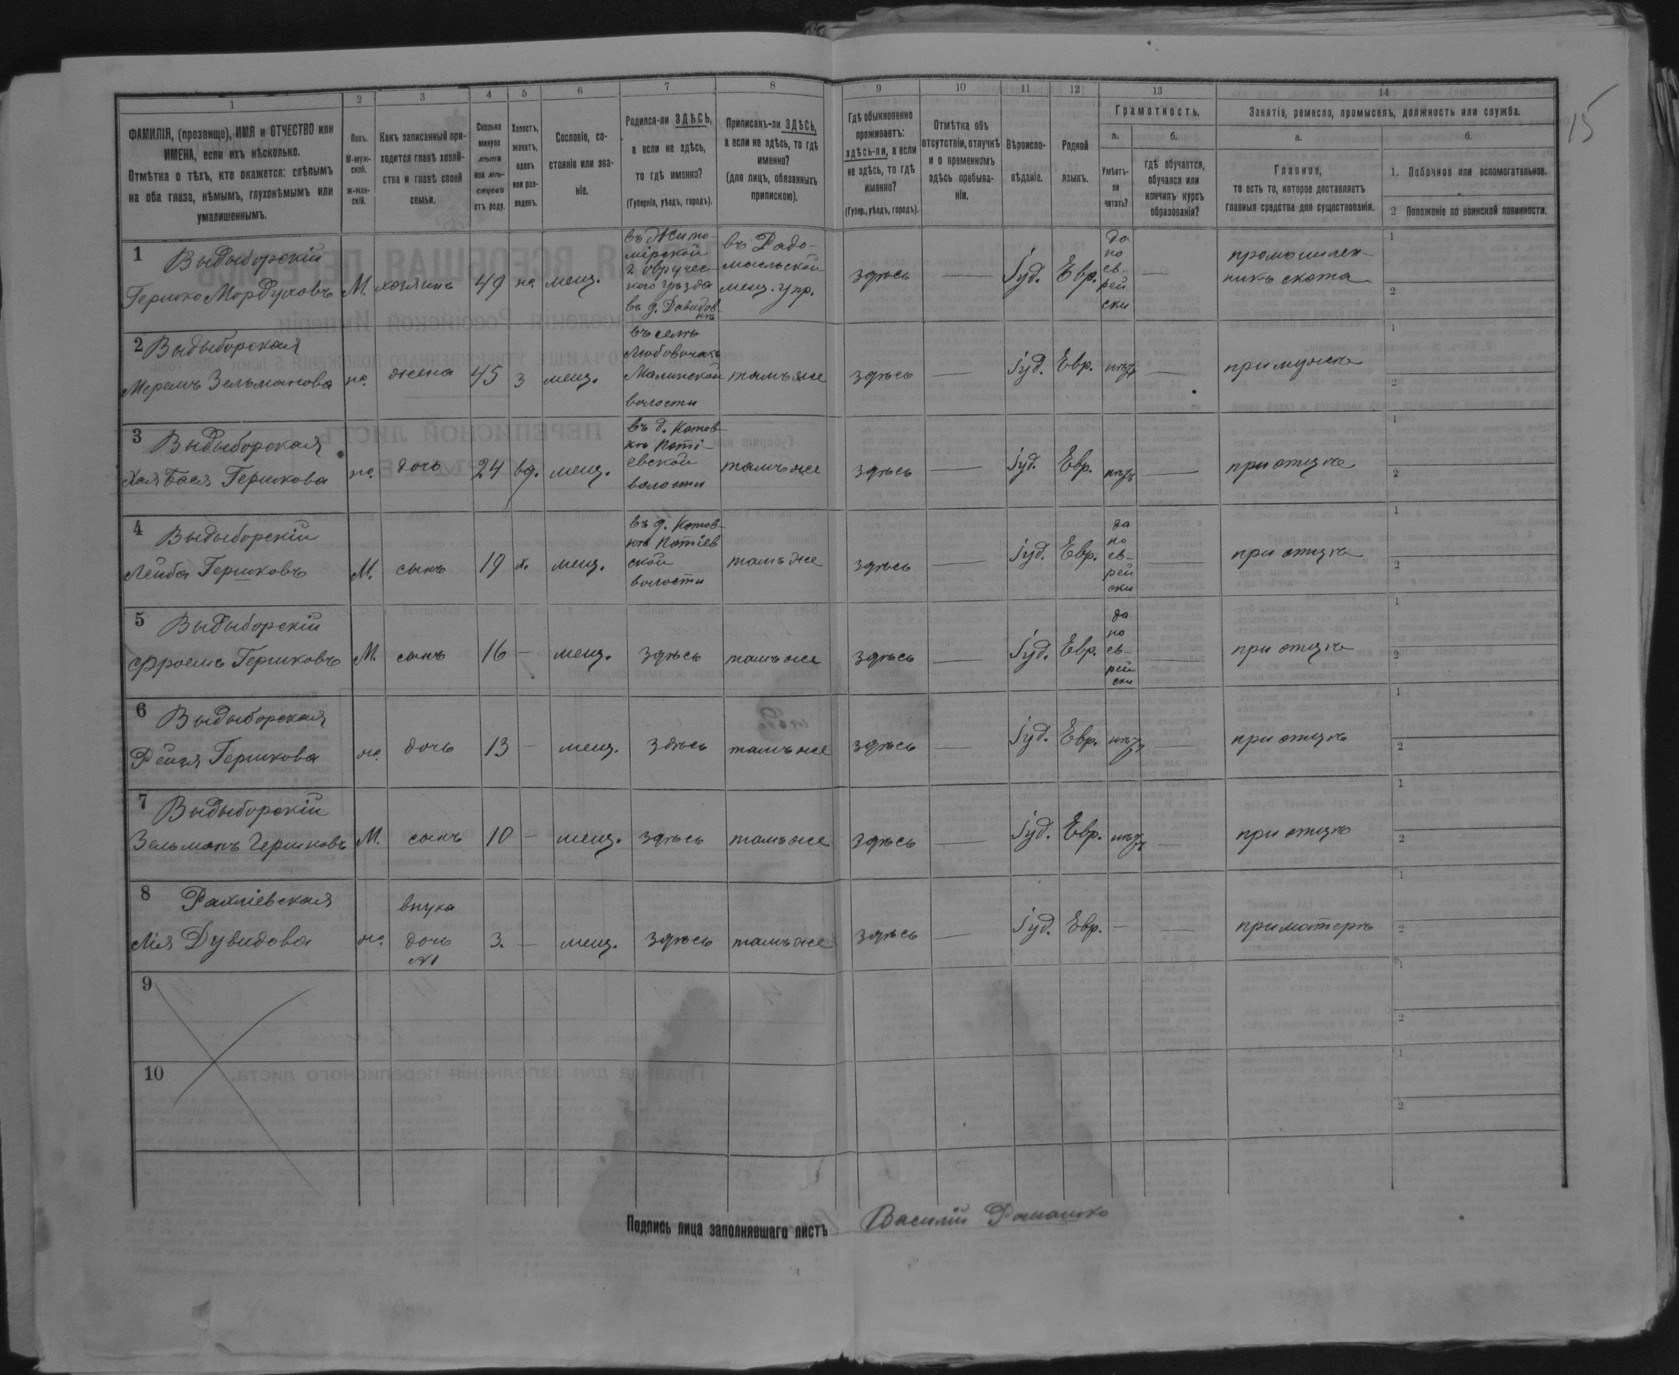 15
1
2
3
4
5
6
7
8
9
10
11
12
13
14
ФАМИЛІЯ, (прозвище), ИМЯ и ОТЧЕСТВО или
ИМЕНА, если ихъ нѣсколько.
Отмѣтка о тѣхъ, кто окажется: слѣпымъ
на оба глаза, нѣмымъ, глухонѣмымъ или
умалишеннымъ.
Полъ.
М-муж-
ской.
ж-жен-
скій.
Какъ записанный при-
ходится главѣ хозяй-
ства и главѣ своей
семьи.
Сколько
минуло
лѣтъ
или мѣ-
сяцевъ
отъ роду.
Холостъ,
женатъ,
вдовъ
или раз-
веденъ.
Сословіе, со-
стояніе или зва-
ніе.
Родился-ли ЗДѢСЬ,
а если не здѣсь,
то гдѣ именно?
(Губернія, уѣздъ, городъ).
Приписанъ-ли ЗДѢСЬ,
а если не здѣсь, то гдѣ
именно?
(для лицъ, обязанныхъ
припискою).
Гдѣ обыкновенно
проживаетъ:
здѣсь-ли, а если
не здѣсь, то гдѣ
именно?
(Губер., уѣздъ, городъ).
Отмѣтка объ
отсутствіи, отлучкѣ
и о временномъ
здѣсь пребыва-
ніи.
Вѣроиспо-
вѣданіе.
Родной
языкъ.
Грамотность.
а.
Умѣетъ-
ли
читать?
б.
гдѣ обучается,
обучался или
кончилъ курсъ
образованія?
Занятіе, ремесло, промыселъ, должность или служба.
а.
Главное,
то есть то, которое доставляетъ
главныя средства для существованія.
б.
1. Побочное или вспомогательное.
2 Положеніе по воинской повинности.
1 Выдыборскій
Гершко Мордуховъ М. хозяинъ 49 ж. мещ.
въ Жито-
мірской
г. Овручес-
кого уѣзда
въ д. Давидов
кѣ
въ Радо-
мысльской
мещ. упр.
здѣсь — Іуд. Евр.
да
по
ев-
рей
ски
—
промышлен-
никъ скота
1
2
2 Выдыборская
Меремъ Зельманова ж. жена 45 з мещ.
въ селѣ
Малинской
волости
тамъ же здѣсь — Іуд. Евр. нѣтъ — при мужѣ
1
2
3 Выдыборская
Хая Бася Гершкова ж. дочь 24 вд. мещ.
въ д. Котов-
кѣ Поті-
евской
волости
тамъ же здѣсь — Іуд. Евр. нѣтъ — при отцѣ
1
2
4 Выдыборскій
Лейба Гершковъ М. сынъ 19 х. мещ.
въ д. Котов-
кѣ Потіев
ской
волости
тамъ же здѣсь — Іуд. Евр.
да
по
ев-
рей
ски
— при отцѣ
1
2
5 Выдыборскій
Фроемъ Гершковъ М. сынъ 16 — мещ. здѣсь тамъ же здѣсь — Іуд. Евр.
да
по
ев-
рей
ски
— при отцѣ
1
2
6 Выдыборская
Рейзя Гершкова ж. дочь 13 — мещ. здѣсь тамъ же здѣсь — Іуд. Евр. нѣтъ — при отцѣ
1
2
7 Выдыборскій
Зельманъ Гершковъ М. сынъ 10 — мещ. здѣсь тамъ же здѣсь — Іуд. Евр. нѣтъ — при отцѣ
1
2
8
внука
Дувидова ж. дочь 3. — мещ. здѣсь тамъ же здѣсь — Іуд. Евр. — — при матерѣ
№1
1
2
9
1
2
10
1
2
Подпись лица заполнявшаго листъ Василій